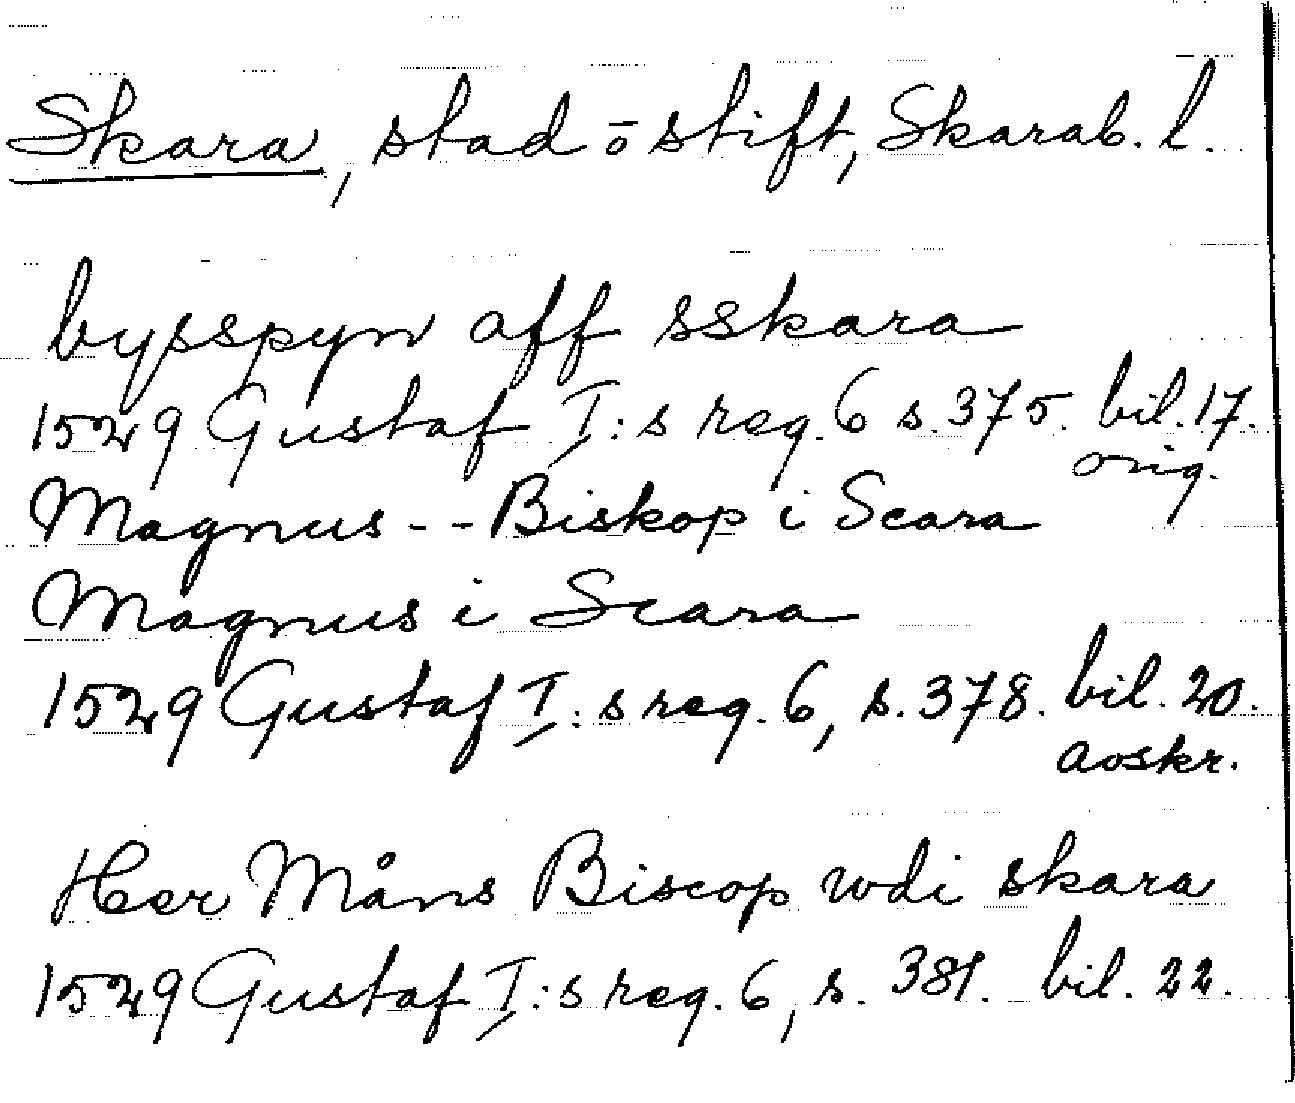 Skara, stad ō stift, Skarab. l.
bysspyn aff sskara
1529 Gustaf I:s reg. 6 s. 375. bil. 17.
orig.
Magnus -- Biskop i Scara
Magnus i Scara
1529 Gustaf I:s reg. 6, s. 378. bil. 20.
avskr.
Her Måns Biscop wdi skara
1529 Gustaf I:s reg. 6, s. 381. bil. 22.